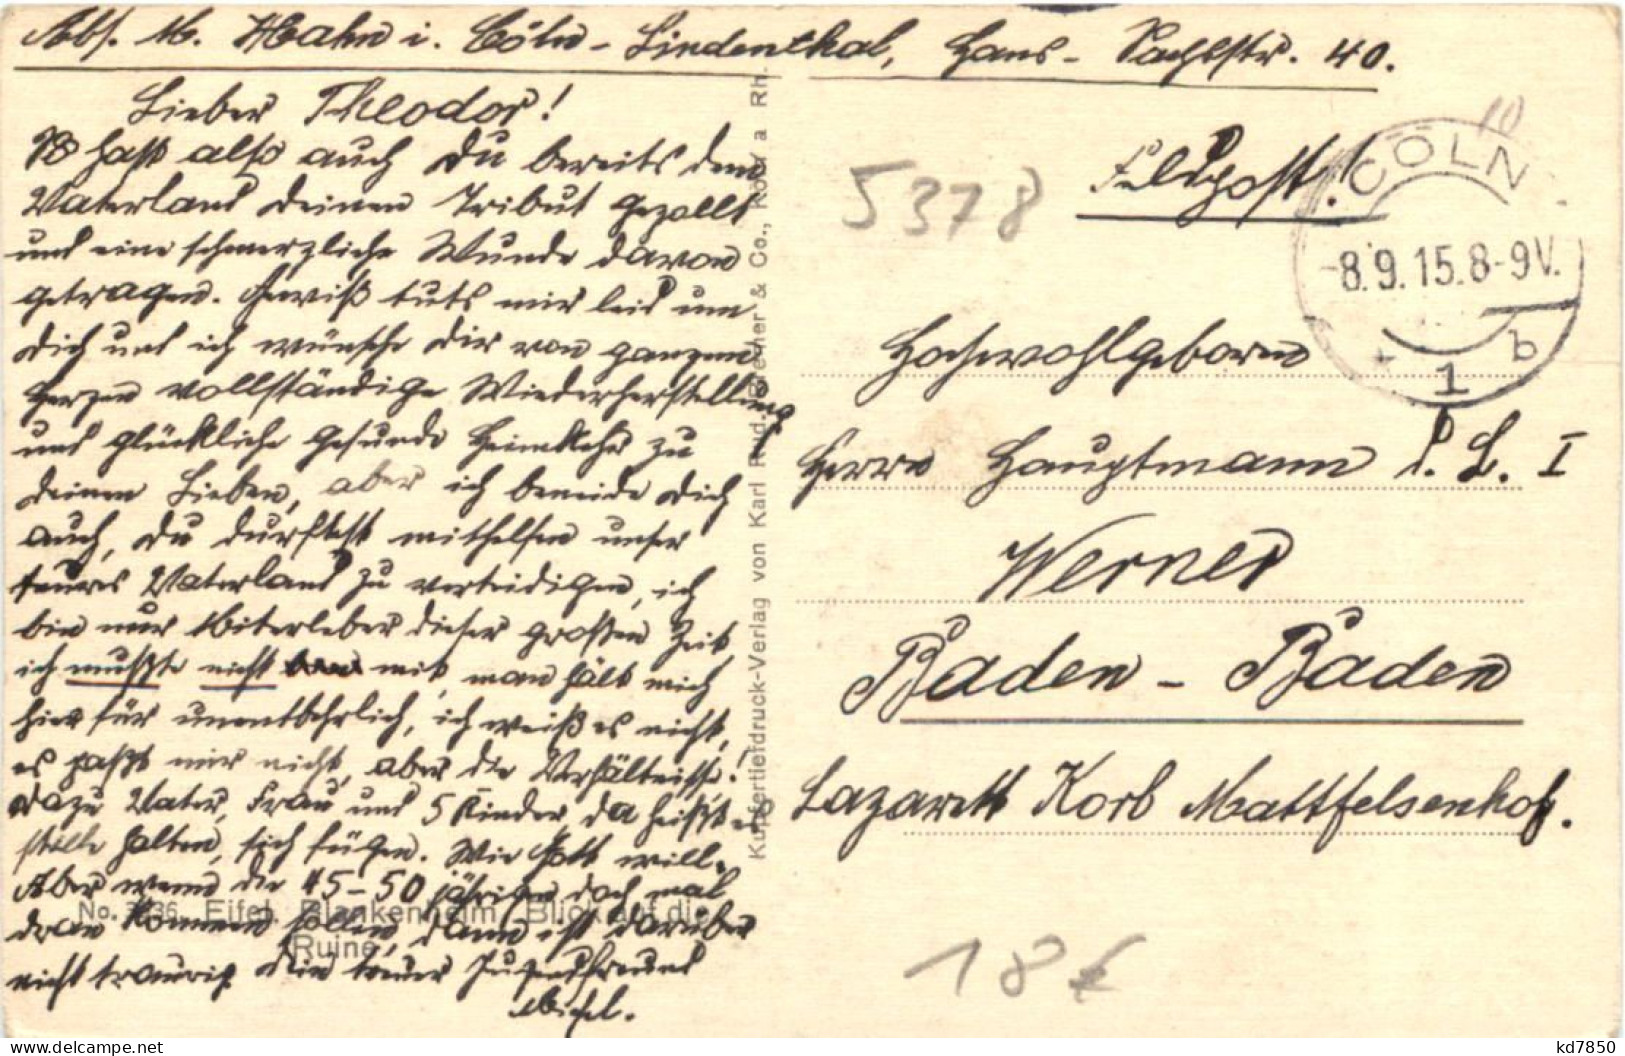 Abs. M. Hahn i. Cöln-Lindenthal, Hans-Sachsstr. 40.
Lieber Theodor!
So hast also auch Du bereits dem
Vaterland Deinen Tribut gezollt
und eine schmerzliche Wunde davon
getragen. Gewiß tuts mir leid um
Dich und ich wünsche Dir von ganzem
Herzen vollständige Wiederherstellung
und glückliche gesunde Heimkehr zu
Deinen Lieben, aber ich beneide Dich
auch, Du durftest mithelfen unser
teures Vaterland zu verteidigen, ich
bin nur Miterleber dieser großen Zeit
ich mußte nicht mit, man hält mich
hier für unentbehrlich, ich weiß es nicht,
es paßt mir nicht, aber die Verhältnisse!
Dazu Vater, Frau und 5 Kinder, da heißt es
stille halten, sich fügen. Wie Gott will.
Aber wenn die 45-50 jährigen doch mal
dran kommen sollen, dann ist darüber
nicht traurig Dein treuer Jugendfreund
No. Eifel. Blankenheim. Blick auf die
Ruine.
Kupfertiefdruck-Verlag von Karl Rud. Bremer & Co., a Rh.
5378
Feldpost!
10
CÖLN
-8.9.15.8-9V.
* 1 b
Hochwohlgeboren
Herrn Hauptmann d. L. I
Werner
Baden-Baden
Lazarett Korb Mattfelsenhof.
18 €
kd7850